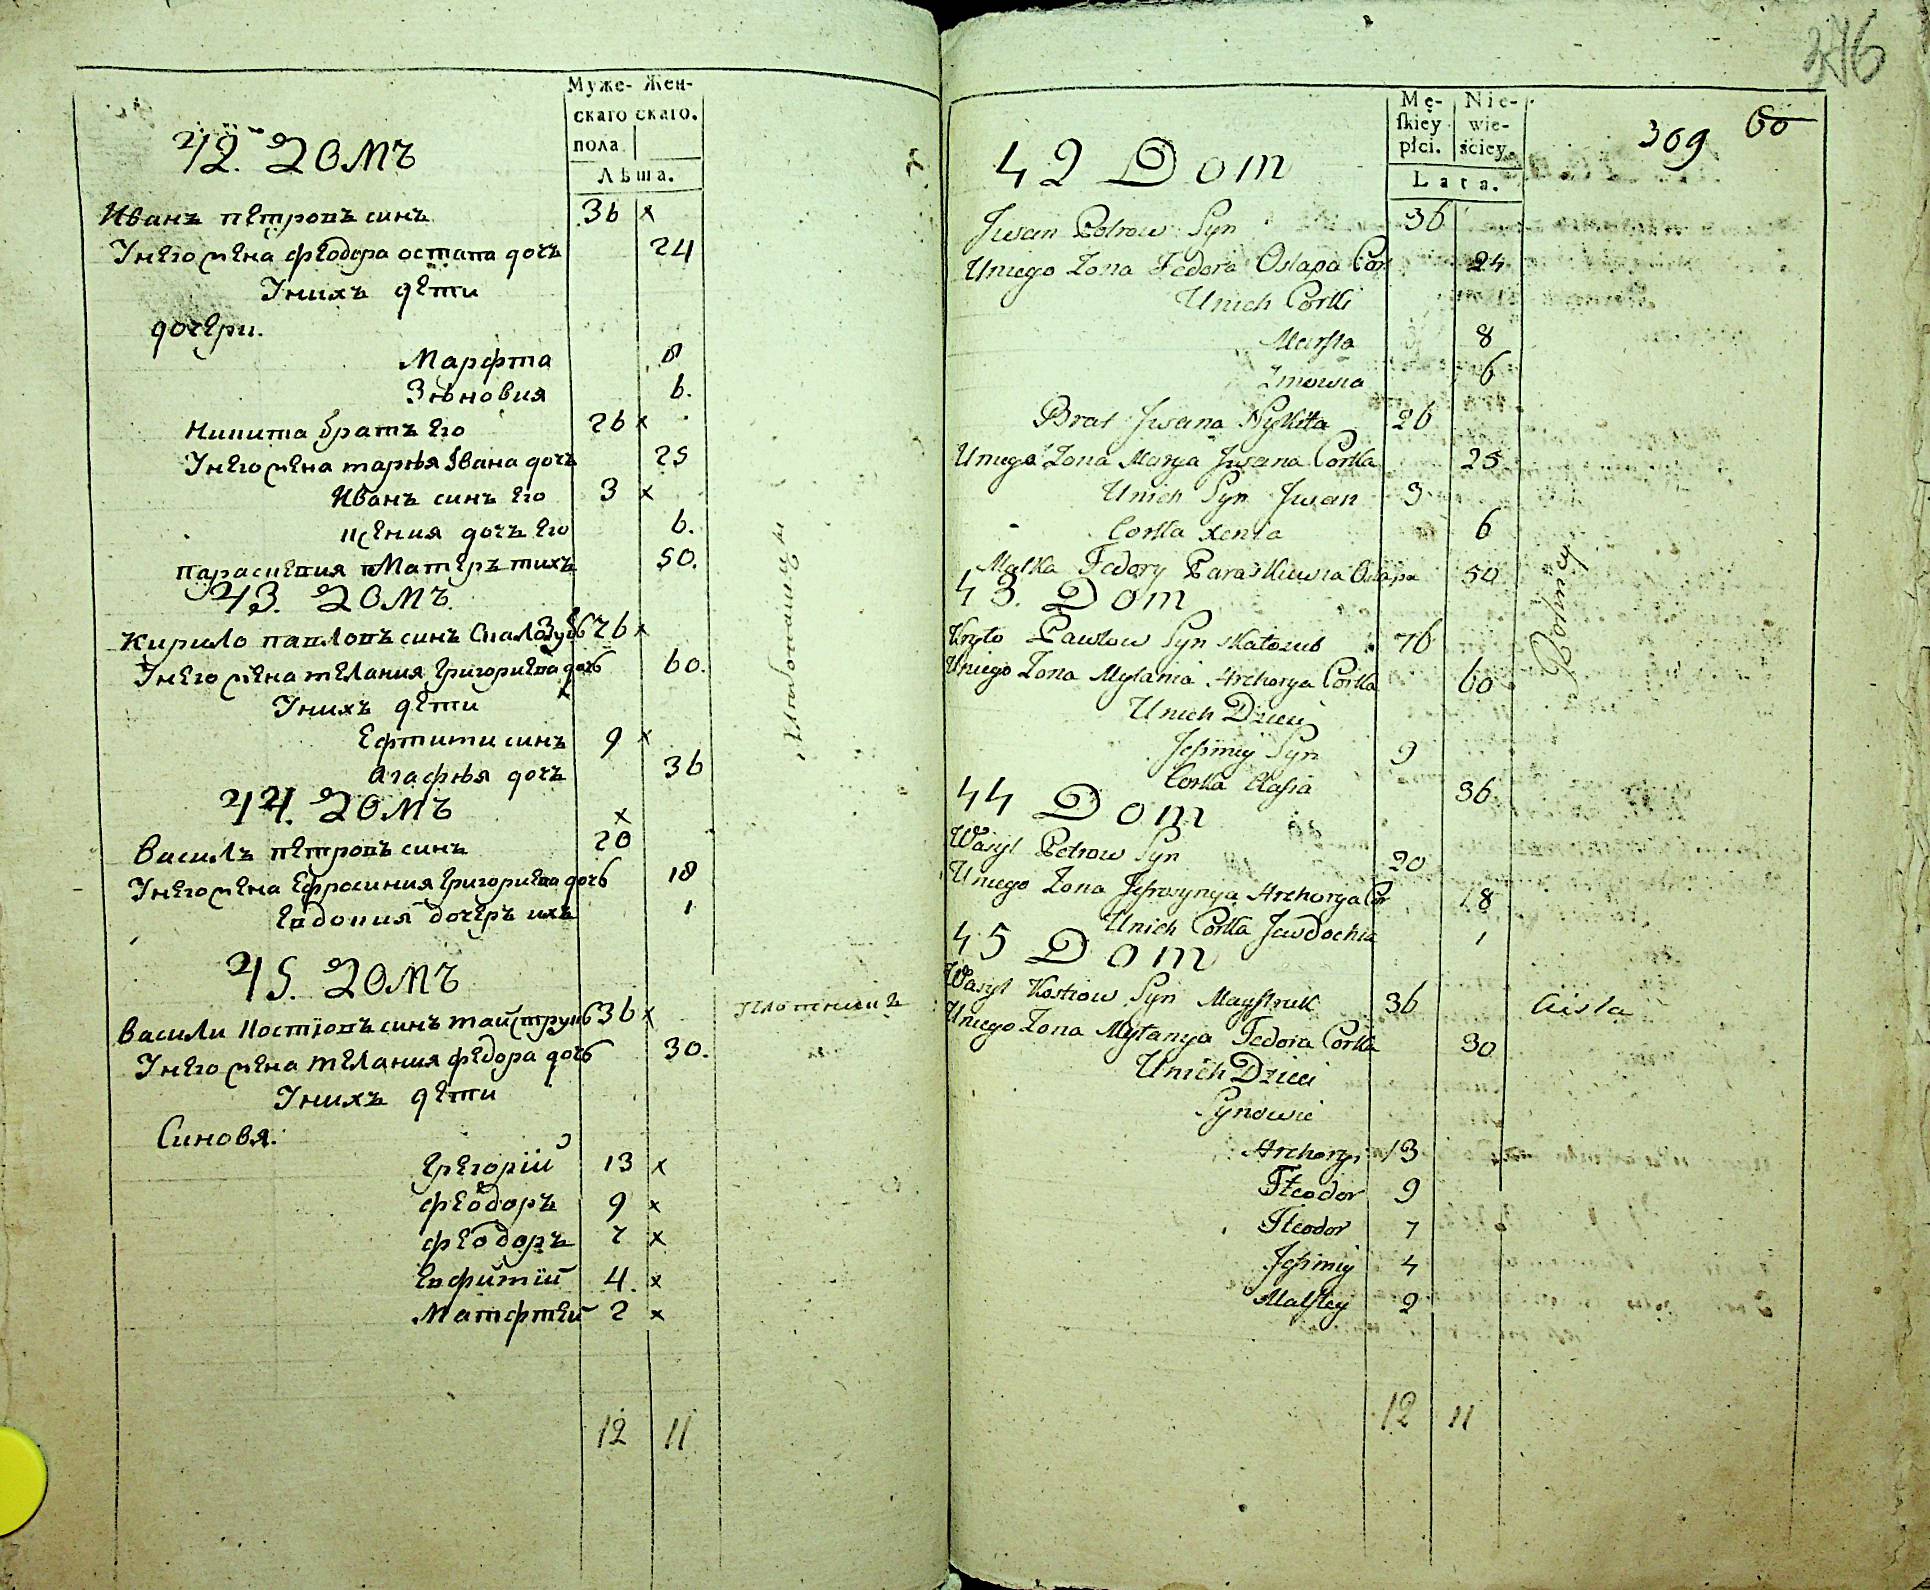 Муже- Жен-
скаго скаго.
пола
Лѣта.
42. домъ
Иванъ петровъ синъ 36 x
Унего жена феодора остапа дочъ 24
Унихъ дети
дочери.
Марфта 8
Зѣновия 6.
Никита братъ его 26 x
Унего жена марѣя Ивана дочъ 25
Иванъ синъ его 3 x
ксения дочъ его 6.
параскевия матеръ тихъ 50.
43. домъ
Кирило павловъ синъ 76 x
Унего жена мелания григориева дочь 60.
Унихъ дети
Ефтими синъ 9 x
Агафѣя дочъ 36
44. домъ
x
Василъ петровъ синъ 20
Унего жена Ефросиния григориева дочь 18
Евдокия дочеръ ихъ 1
45. домъ
Васили Костювъ синъ майструкъ 36 x
Унего жена мелания федора дочь 30.
Унихъ дети
Синовя.
Григорій 13 x
феодоръ 9 x
феодоръ 7 x
Евфимій 4. x
Матфтей 2 x
12 11
хлѣбопашцы
плотникъ
376
Mę- Nie-
ſkiey wie-
płci. ściey.
Lata.
309 60
42 Dom
Jwan Petrow Syn 36
Uniego Zona Fedora Ostapa Cor 24
Unich Corki
Marfta 8
Zinowia 6
Brat Jwana Nykitta 26
Uniego Zona Marya Jwana Corka 25
Unich Syn Jwan 3
Corka Xenia 6
Matka Fedory Paraskiewia Ostapa 50
43. Dom
Kryło Pawłow Syn 76
Uniego Zona Mylania Hrehorya Corka 60
Unich Dzieci
Jefimiy Syn 9
Corka Hafia 36
44 Dom
Wasyl Petrow Syn 20
Uniego Zona Jefrosynya Hrehorya Cor 18
Unich Corka Jewdochia 1
45 Dom
Wasyl Kostiow Syn Maystruk 36
Uniego Zona Myłanya Fedora Corka 30
Unich Dzieci
Synowie
Hrehory 13
Fteodor 9
Fteodor 7
Jefimiy 4
Matftey 2
12 11
Rolnicy
Cieśla